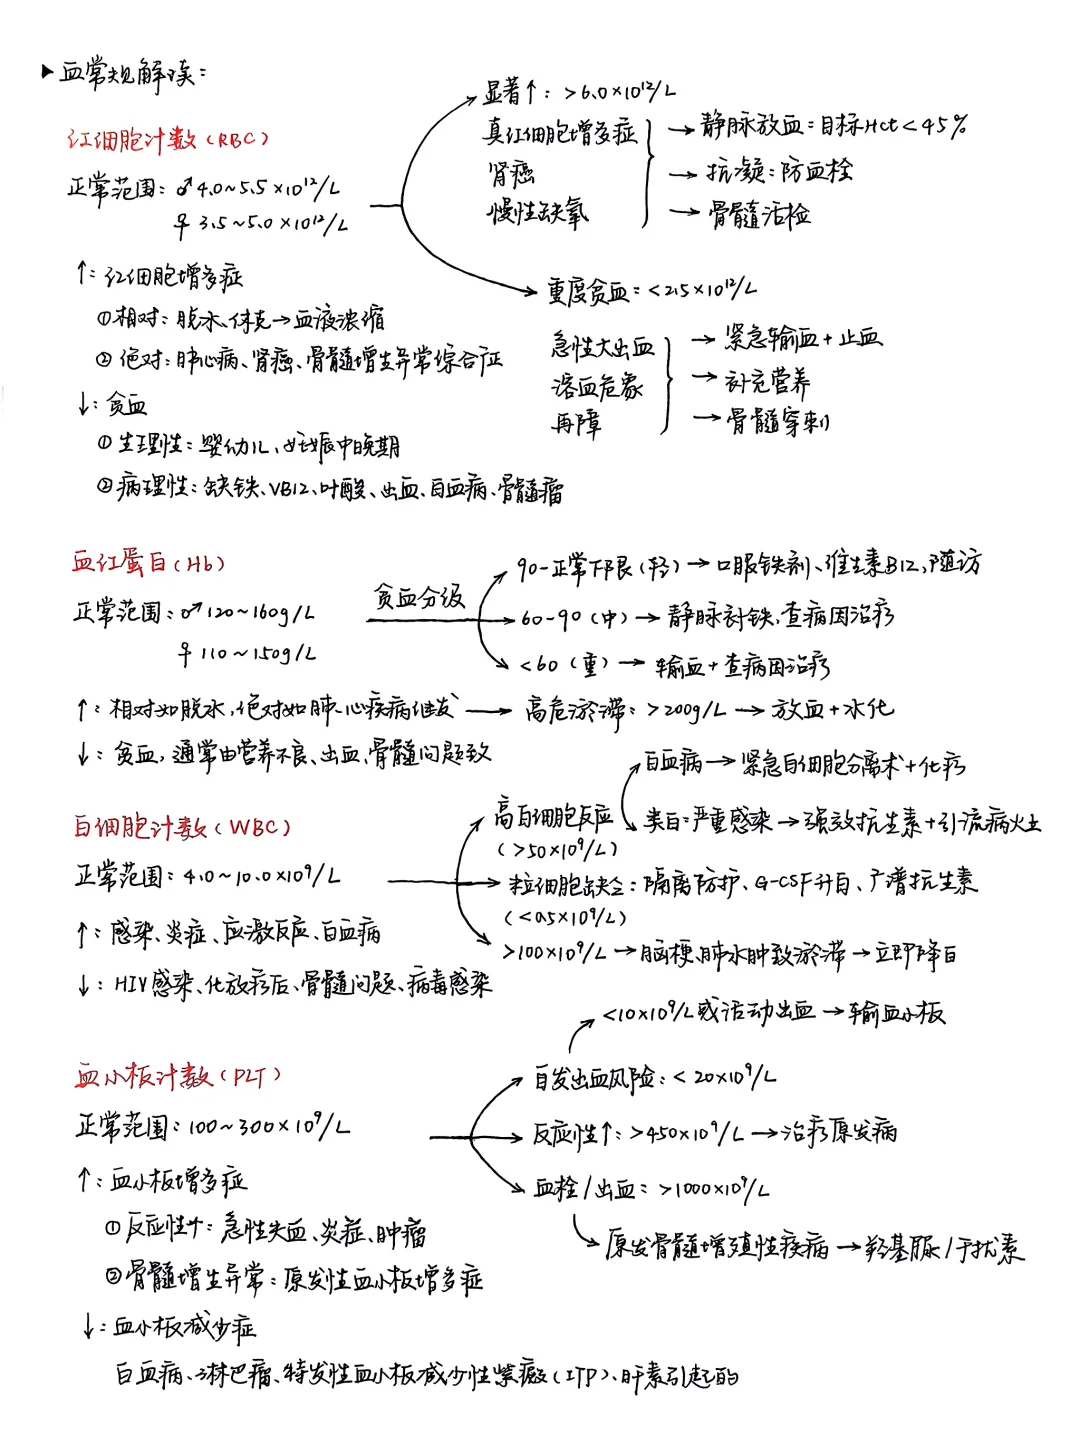 ▶血常规解读：
红细胞计数(RBC)
正常范围：♂4.0~5.5×10¹²/L
♀3.5~5.0×10¹²/L
显著↑：>6.0×10¹²/L
真红细胞增多症
肾癌
慢性缺氧
→静脉放血：目标Hct<45%
→抗凝：防血栓
→骨髓活检
↑：红细胞增多症
①相对：脱水、休克→血液浓缩
②绝对：肺心病、肾癌、骨髓增生异常综合征
↓：贫血
①生理性：婴幼儿、妊娠中晚期
②病理性：缺铁、VB12、叶酸、出血、白血病、骨髓瘤
重度贫血：<2.5×10¹²/L
急性大出血
溶血危象
再障
→紧急输血+止血
→补充营养
→骨髓穿刺
血红蛋白(Hb)
正常范围：♂120~160g/L
♀110~150g/L
贫血分级
90-正常下限(轻)→口服铁剂、维生素B12,随访
60-90(中)→静脉补铁,查病因治疗
<60(重)→输血+查病因治疗
↑：相对如脱水,绝对如肺、心疾病继发→高危淤滞：>200g/L→放血+水化
↓：贫血,通常由营养不良、出血、骨髓问题致
白细胞计数(WBC)
正常范围：4.0~10.0×10⁹/L
高白细胞反应
(>50×10⁹/L)
白血病→紧急白细胞分离术+化疗
类白：严重感染→强效抗生素+引流病灶
粒细胞缺乏：隔离防护、G-CSF升白、广谱抗生素
(<0.5×10⁹/L)
>100×10⁹/L→脑梗、肺水肿致淤滞→立即降白
↑：感染、炎症、应激反应、白血病
↓：HIV感染、化放疗后、骨髓问题、病毒感染
血小板计数(PLT)
正常范围：100~300×10⁹/L
<10×10⁹/L或活动出血→输血小板
自发出血风险：<20×10⁹/L
反应性↑：>450×10⁹/L→治疗原发病
血栓/出血：>1000×10⁹/L
原发骨髓增殖性疾病→羟基脲/干扰素
↑：血小板增多症
①反应性↑：急性失血、炎症、肿瘤
②骨髓增生异常：原发性血小板增多症
↓：血小板减少症
白血病、淋巴瘤、特发性血小板减少性紫癜(ITP)、肝素引起的